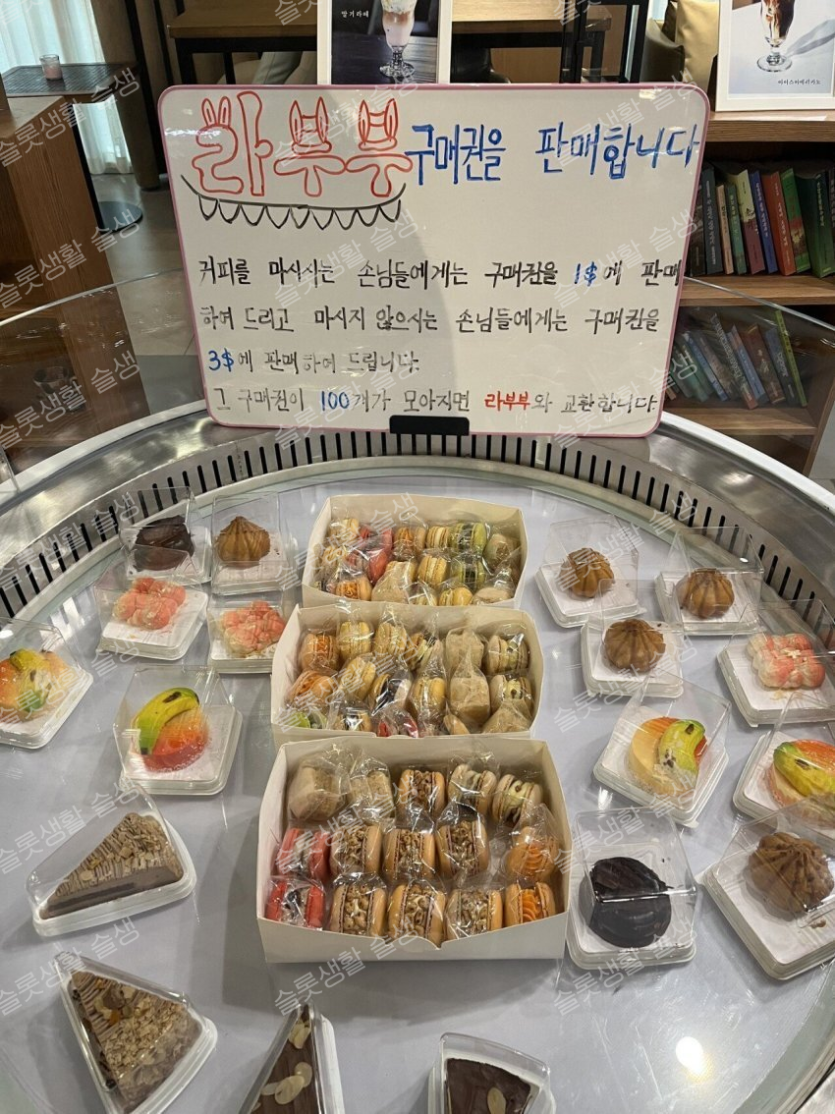 딸기라떼
아이스아메리카노
라부부 구매권을 판매합니다
커피를 마시시는 손님들에게는 구매권을 1$에 판매
하여 드리고 마시지 않으시는 손님들에게는 구매권을
3$에 판매하여 드립니다.
그 구매권이 100개가 모아지면 라부부와 교환합니다.
슬롯생활 슬생